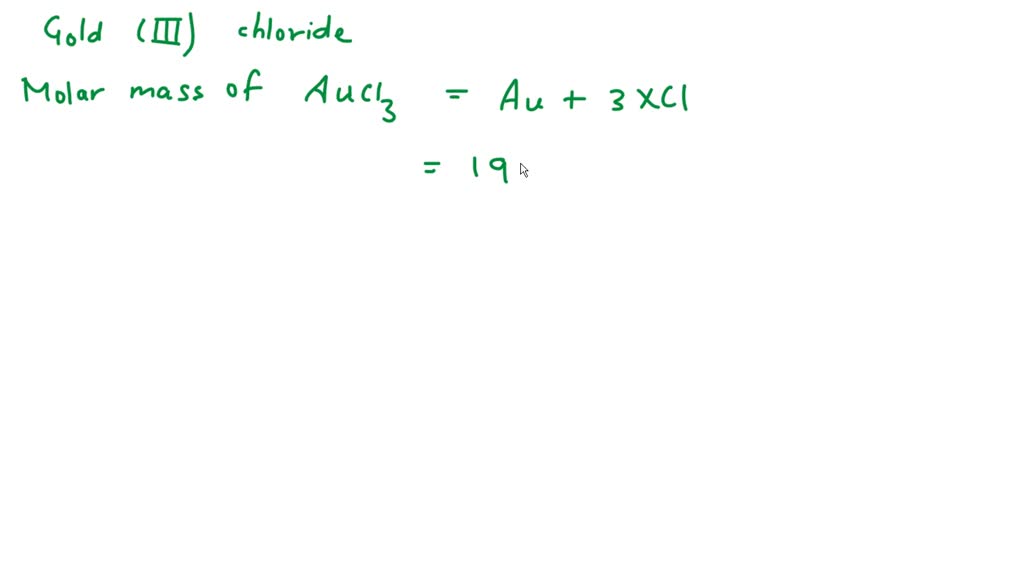 Gold (III) chloride
Molar mass of AuCl3 = Au + 3 x Cl
= 19